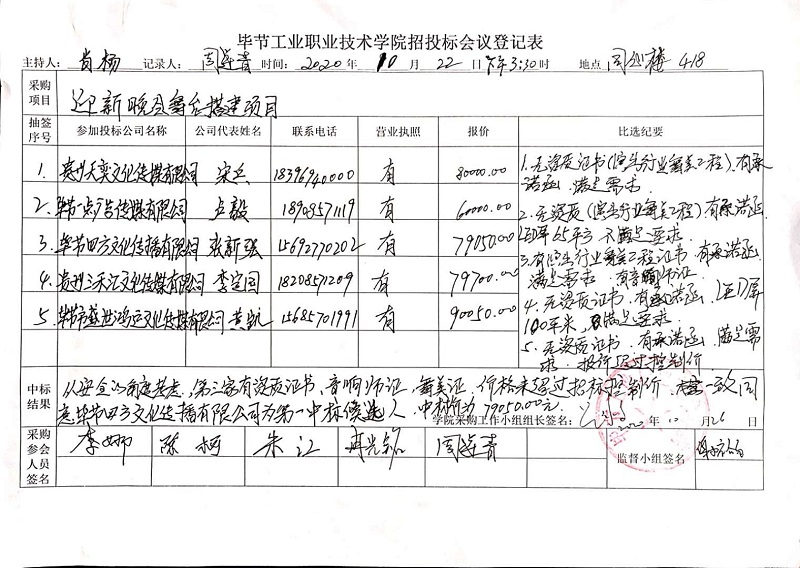 毕节工业职业技术学院招投标会议登记表
主持人: 肖杨 记录人: 周莲青 时间: 2020 年 10 月 22 日 下午3:30时 地点 418
采购项目 迎新晚会舞台搭建项目
抽签序号 参加投标公司名称 公司代表姓名 联系电话 营业执照 报价 比选纪要
1. 贵州天奕文化传媒有限公司 宋兵 18396940000 有 80000.00
2. 毕节一点广告传媒有限公司 卢毅 18908571119 有 60000.00
3 毕节四方文化传播有限公司 张新强 15692770202 有 79050.00
4. 贵州三禾汇文化传媒有限公司 李定国 18208571209 有 79700.00
5. 毕节市盛世鸿运文化传媒有限公司 黄凯 15685701991 有 90050.00
1. 无资质证书(行业舞美工程).有承
诺函 满足需求.
2. 无资质(行业舞美工程)有承诺函
65平方 不满足要求.
3.有行业舞美工程证书.有承诺函
满足需求. 有音响师证
4. 无资质证书.有承诺函. LED屏
100平米, 满足要求.
5. 无资质证书.有承诺函. 满足需
求. 报价超过控制价
中标结果 从安全的角度考虑,第三家有资质证书、音响师证,舞美证.价格未超过招标控制价 一致同
意毕节四方文化传播有限公司为第一中标候选人,中标价为79050.00元.
学院采购工作小组组长签名: 2020 年 10 月26 日
采购参会人员签名 李娜 陈柯 朱江 周莲青 监督小组签名